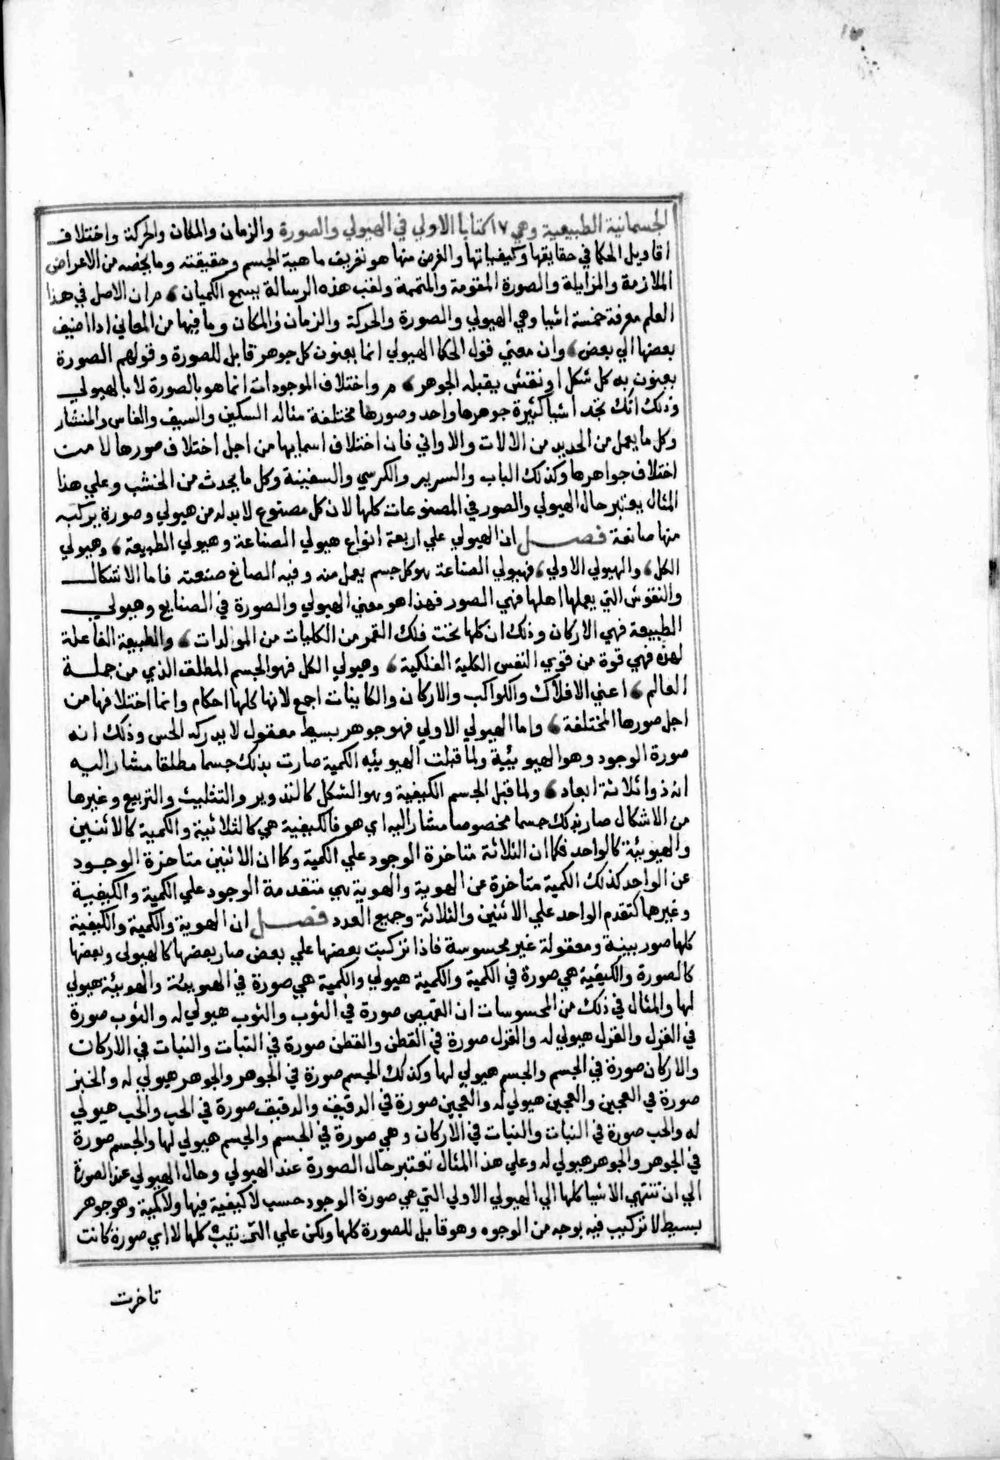 الجسمانية الطبيعية وهي ١٧ كتابا الاولي في الهيولي والصورة والزمان والمكان والحركة واختلاف
اقاويل الحكما في حقايقها وكيفياتها والغرض منها هو تعريف ماهية الجسم وحقيقته وما يخصه من الاعراض
الملازمة والمزايلة والصورة المقومة والمتممة ولقب هذه الرسالة بسمع الكيان ، م ان الاصل في هذا
العلم معرفة خمسة اشيا وهي الهيولي والصورة والحركة والزمان والمكان وما فيها من المعاني اذا اضيف
بعضها الي بعض ، وان معني قول الحكما الهيولي انما يعنون كل جوهر قابل للصورة وقولهم الصورة
يعنون به كل شكل او نقش يقبله الجوهر ، م واختلاف الموجودات انما هو بالصورة لا بالهيولي
وذلك انك تجد اشيا كثيرة جوهرها واحد وصورها مختلفة مثاله السكين والسيف والفاس والمنشار
وكل ما يعمل من الحديد من الالات والاواني فان اختلاف اسمايها من اجل اختلاف صورها لا من
اختلاف جواهرها وكذلك الباب والسرير والكرسي والسفينة وكل ما يحدث من الخشب وعلي هذا
المثال يعتبر حال الهيولي والصور في المصنوعات كلها لان كل مصنوع لابد له من هيولي وصورة يركبه
منها صانعة فصل ان الهيولي علي اربعة انواع هيولي الصناعة وهيولي الطبيعة ، وهيولي
الكل ، والهيولي الاولي ، فهيولي الصناعة هو كل جسم يعمل منه وفيه الصانع صنعته فاما الاشكال
والنقوش التي يعملها اهلها فهي الصور فهذا هو معني الهيولي والصورة في الصنايع وهيولي
الطبيعة فهي الاركان وذلك ان كلها تحت فلك القمر من الكليات من المولدات ، والطبيعة الفاعلة
لهذه فهي قوة من قوي النفس الكلية الفلكية ، وهيولي الكل فهو الجسم المطلق الذي من جملة
العالم ، اعني الافلاك والكواكب والاركان والكاينات اجمع لانها كلها احكام وانما اختلافها من
اجل صورها المختلفة ، واما الهيولي الاولي فهو جوهر بسيط معقول لا يدركه الحس وذلك انه
صورة الوجود وهو الهيوئية ولما قبلت الهيوئيه الكمية صارت بذلك جسما مطلقا مشار اليه
انه ذو ثلاثة ابعاد ، ولما قبل الجسم الكيفية وهو الشكل كالتدوير والتثليث والتربيع وغيرها
من الاشكال صار بذلك جسما مخصوصا مشار اليه اي هو فالكيفية هي كالثلاثية والكمية كالاثنين
والهيوئية كالواحد فكما ان الثلاثة متاخرة الوجود علي الكمية وكما ان الاثنين متاخرة الوجود
عن الواحد كذلك الكمية متاخرة عن الهوية والهوية هي متقدمة الوجود علي الكمية والكيفية
وغيرها كتقدم الواحد علي الاثنين والثلاثة وجميع العدد فصل ان الهوية والكمية والكيفية
كلها صور بينة ومعقولة غير محسوسة فاذا تركبت بعضها علي بعض صار بعضها كالهيولي وبعضها
كالصورة والكيفية هي صورة في الكمية والكمية هيولي والكمية هي صورة في الهيوئة والهوئية هيولي
لها والمثال في ذلك من المحسوسات ان القميص صورة في الثوب والثوب هيولي له والثوب صورة
في الغزل والغزل هيولي له والغزل صورة في القطن والقطن صورة في النبات والنبات في الاركان
والاركان صورة في الجسم والجسم هيولي لها وكذلك الجسم صورة في الجوهر والجوهر هيولي له والخبز
صورة في العجين والعجين هيولي له والعجين صورة في الدقيق والدقيق صورة في الحب والحب هيولي
له والحب صورة في النبات والنبات في الاركان وهي صورة في الجسم والجسم هيولي لها والجسم صورة
في الجوهر والجوهر هيولي له وعلي هذا المثال تعتبر حال الصورة عند الهيولي وحال الهيولي عند الصورة
الي ان تنتهي الاشيا كلها الي الهيولي الاولي التي هي صورة الوجود حسب لا كيفية فيها ولا كمية وهو جوهر
بسيط لا تركيب فيه بوجه من الوجوه وهو قابل للصورة كلها ولكن علي الترتيب كلها لا اي صورة كانت
تاخرت